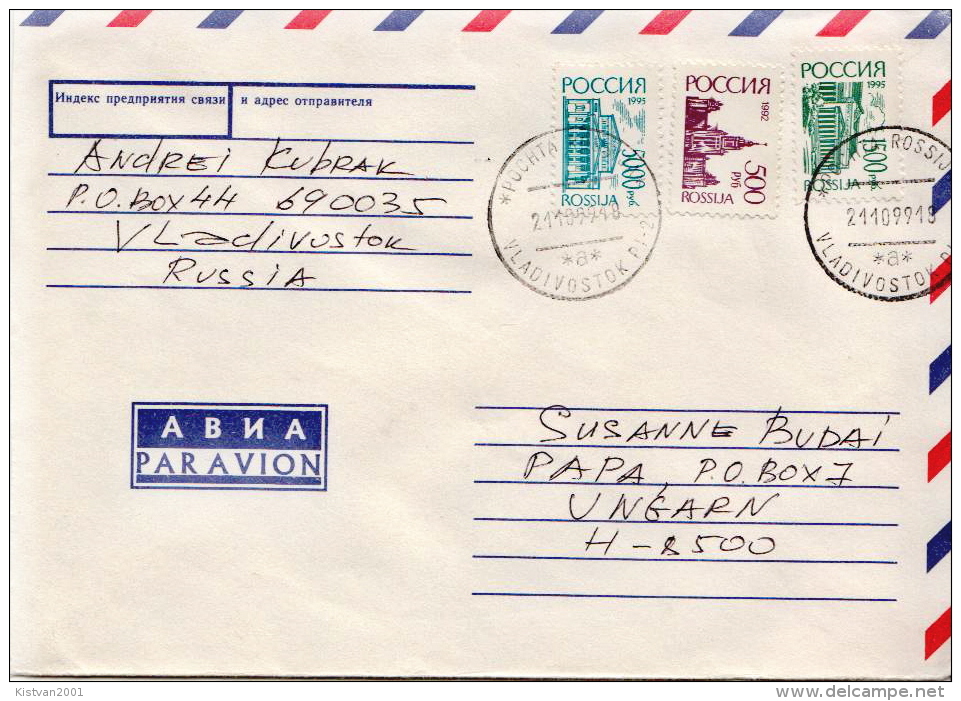 Индекс предприятия связи и адрес отправителя
ANDREI KUBRAK
P.O. BOX 44 690035
VLadivostok
RUSSIA
РОССИЯ
1995
5000 руб
ROSSIJA
РОССИЯ
1992
500 руб
ROSSIJA
РОССИЯ
1995
руб
ROSSIJA
*POCHTA
21109918
*a*
VLADIVOSTOK P.
ROSSIJ
21109918
*a*
VLADIVOSTOK
АВИА
PAR AVION
SUSANNE BUDAI
PAPA, P.O. BOX 7
UNGARN
H-8500
Kistvan2001
www.delcampe.net